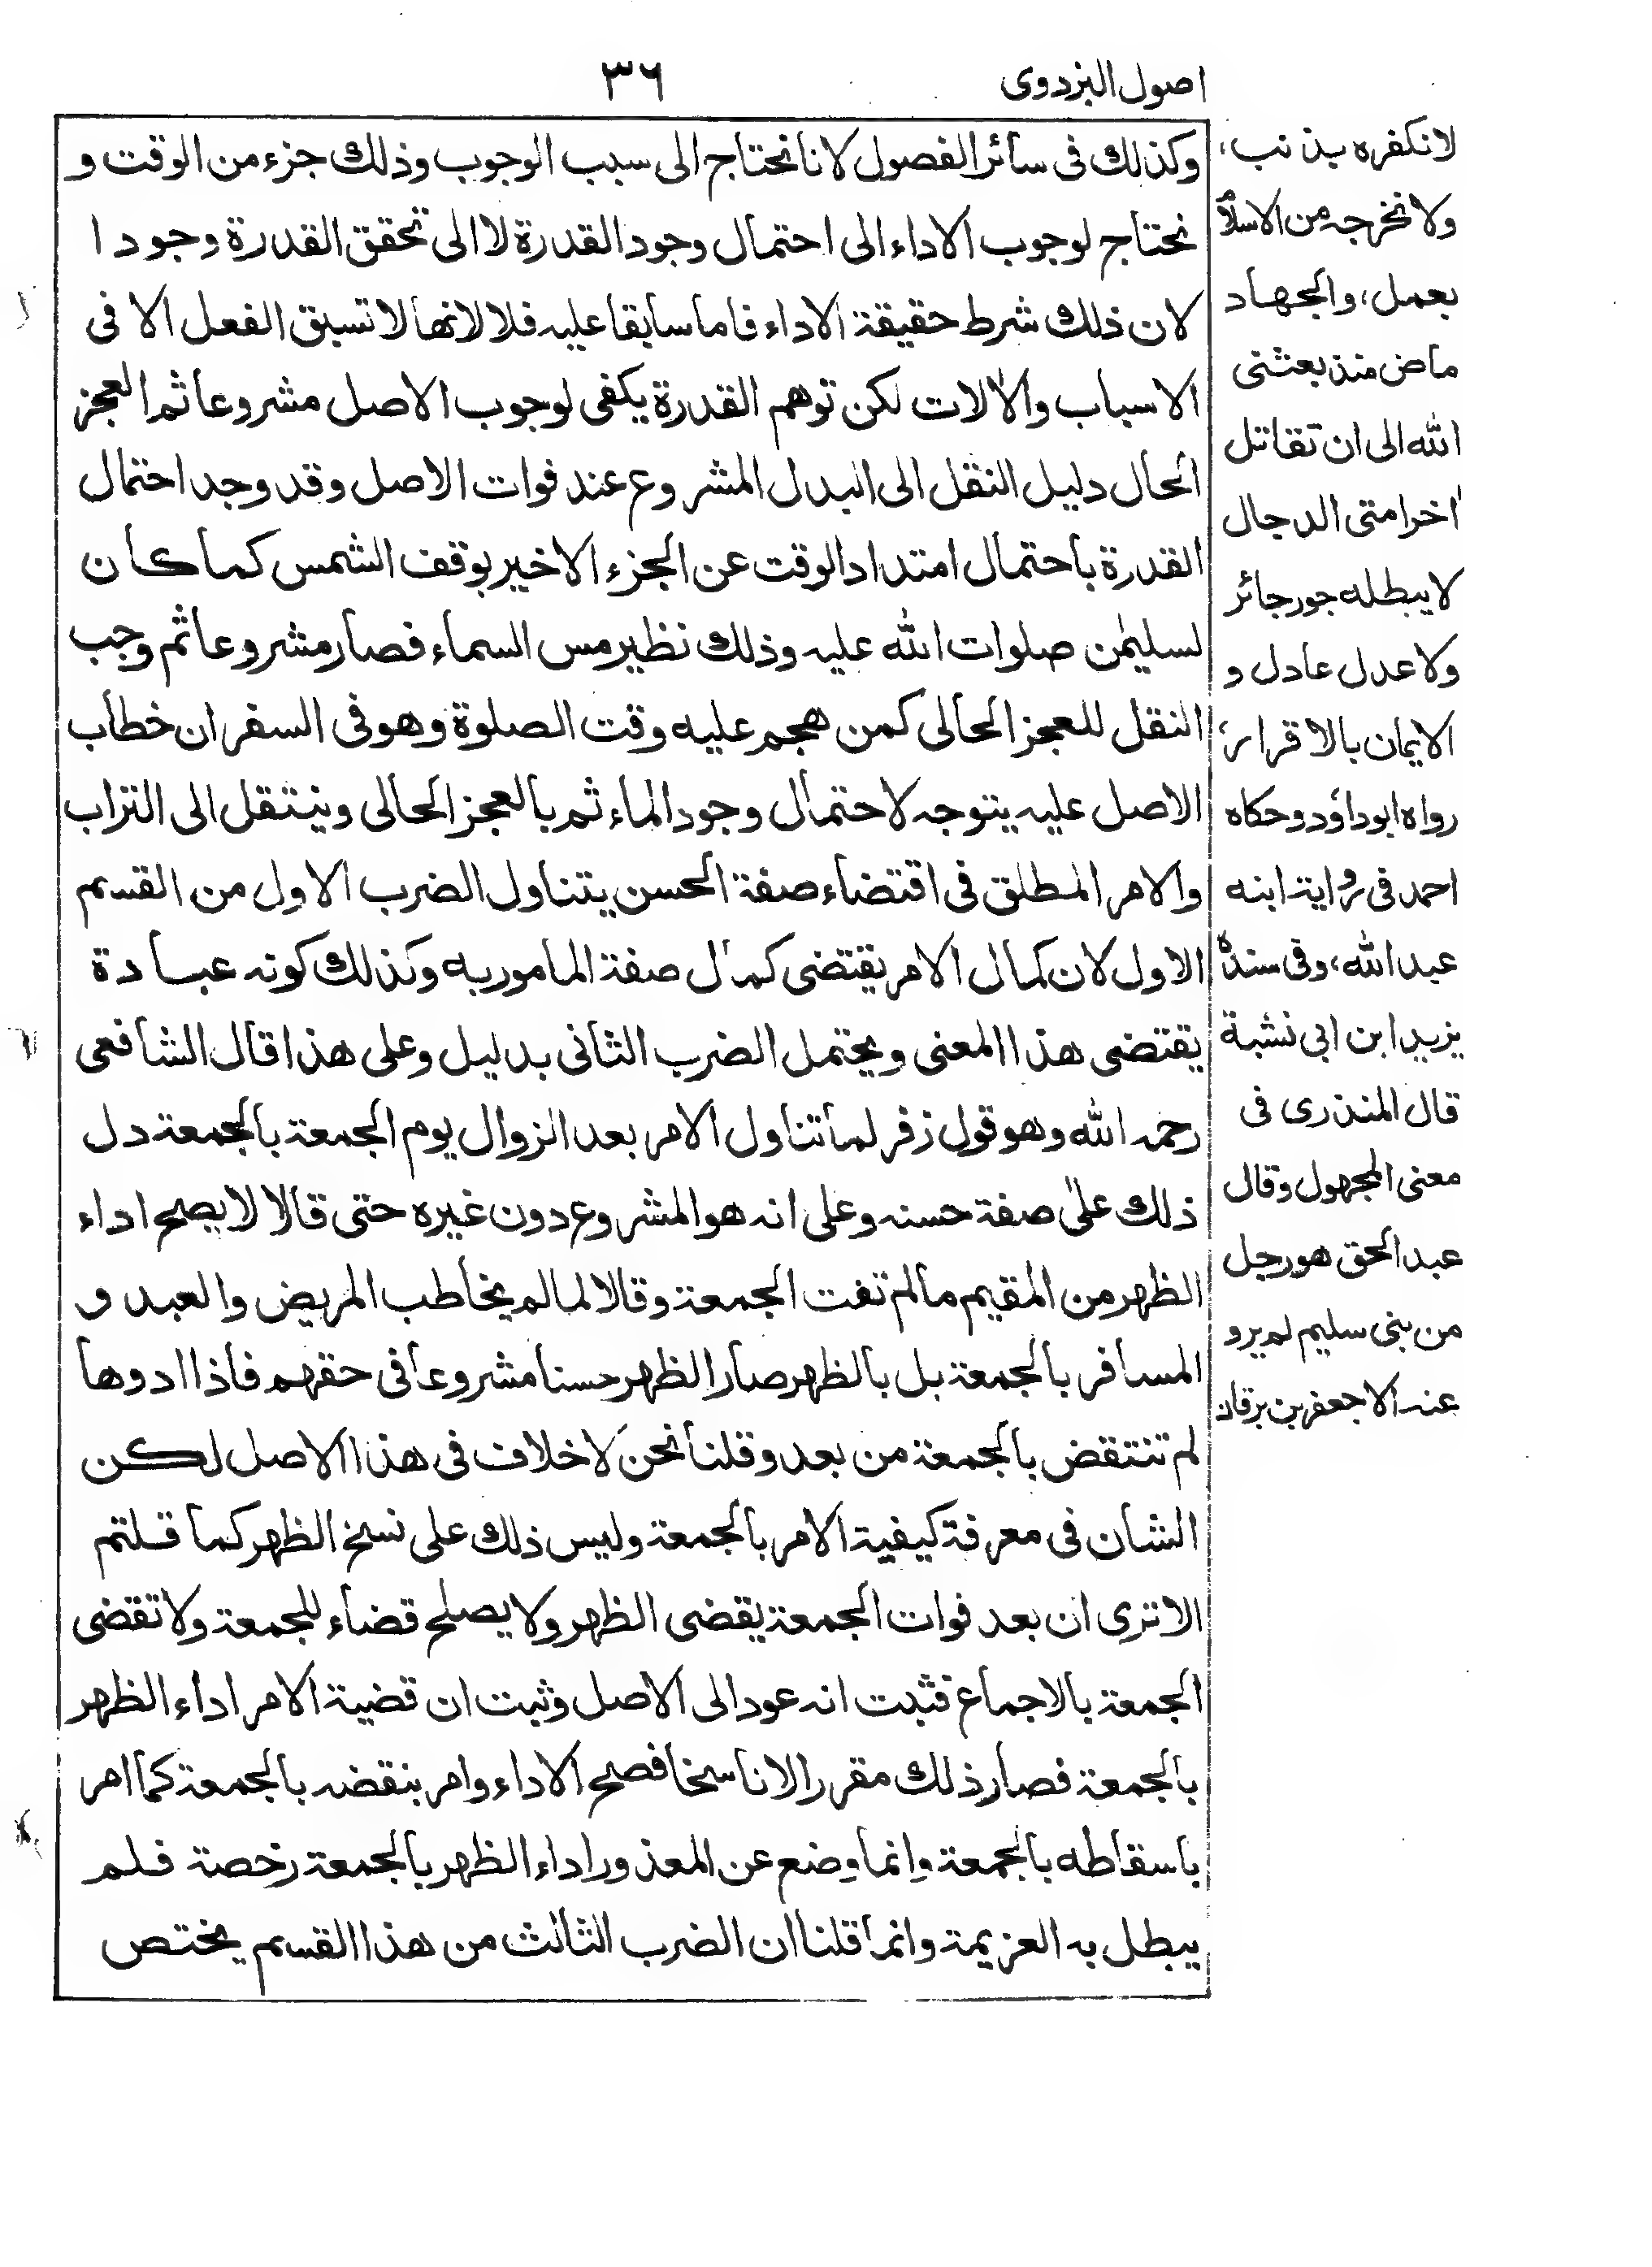 اصول البزدوى
٣٦
وكذلك فى سائر الفصول لانا نحتاج الى سبب الوجوب وذلك جزء من الوقت و
نحتاج لوجوب الاداء الى احتمال وجود القدرة لا الى تحقق القدرة وجودا
لان ذلك شرط حقيقة الاداء فاما سابقا عليه فلا لانها لا تسبق الفعل الا فى
الاسباب والالات لكن توهم القدرة يكفى لوجوب الاصل مشروعا ثم العجز
الحال دليل النقل الى البدل المشروع عند فوات الاصل وقد وجد احتمال
القدرة باحتمال امتداد الوقت عن الجزء الاخير بوقف الشمس كما كان
لسليمٰن صلوات الله عليه وذلك نظير مس السماء فصار مشروعا ثم وجب
النقل للعجز الحالى كمن هجم عليه وقت الصلوة وهو فى السفر ان خطاب
الاصل عليه يتوجه لاحتمال وجود الماء ثم بالعجز الحالى وينتقل الى التراب
والامر المطلق فى اقتضاء صفة الحسن يتناول الضرب الاول من القسم
الاول لان كمال الامر يقتضى كمال صفة المامور به وكذلك كونه عبادة
يقتضى هذا المعنى ويحتمل الضرب الثانى بدليل وعلى هذا قال الشافعى
رحمه الله وهو قول زفر لما تناول الامر بعد الزوال يوم الجمعة بالجمعة دل
ذلك علىٰ صفة حسنه وعلى انه هو المشروع دون غيره حتى قالا لا يصلح اداء
الظهر من المقيم مالم تفت الجمعة وقالا لما لم يخاطب المريض والعبد و
المسافر بالجمعة بل بالظهر صار الظهر حسنا مشروعا فى حقهم فاذا ادوها
لم تنتقض بالجمعة من بعد وقلنا نحن لا خلاف فى هذا الاصل لكن
الشان فى معرفة كيفية الامر بالجمعة وليس ذلك على نسخ الظهر كما قلتم
الا ترى ان بعد فوات الجمعة يقضى الظهر ولا يصلح قضاء للجمعة ولا تقضى
الجمعة بالاجماع فثبت انه عود الى الاصل وثبت ان قضية الامر اداء الظهر
بالجمعة فصار ذلك مقررا لا ناسخا فصح الاداء وامر بنقضه بالجمعة كما امر
باسقاطه بالجمعة وانما وضع عن المعذور اداء الظهر بالجمعة رخصة فلم
يبطل به العزيمة وانما قلنا ان الضرب الثالث من هذا القسم يختص
لا نكفره بذنب،
ولا نخرجه من الاسلام
بعمل، والجهاد
ماض منذ بعثنى
الله الى ان تقاتل
اخر امتى الدجال
لا يبطله جور جائر
ولا عدل عادل و
الايمان بالاقرار،
رواه ابوداؤد وحكاه
احمد فى رواية ابنه
عبد الله، وفى سنده
يزيد ابن ابى نشبة
قال المنذرى فى
معنى المجهول وقال
عبد الحق هو رجل
من بنى سليم لم يرو
عنه الا جعفر بن برقان